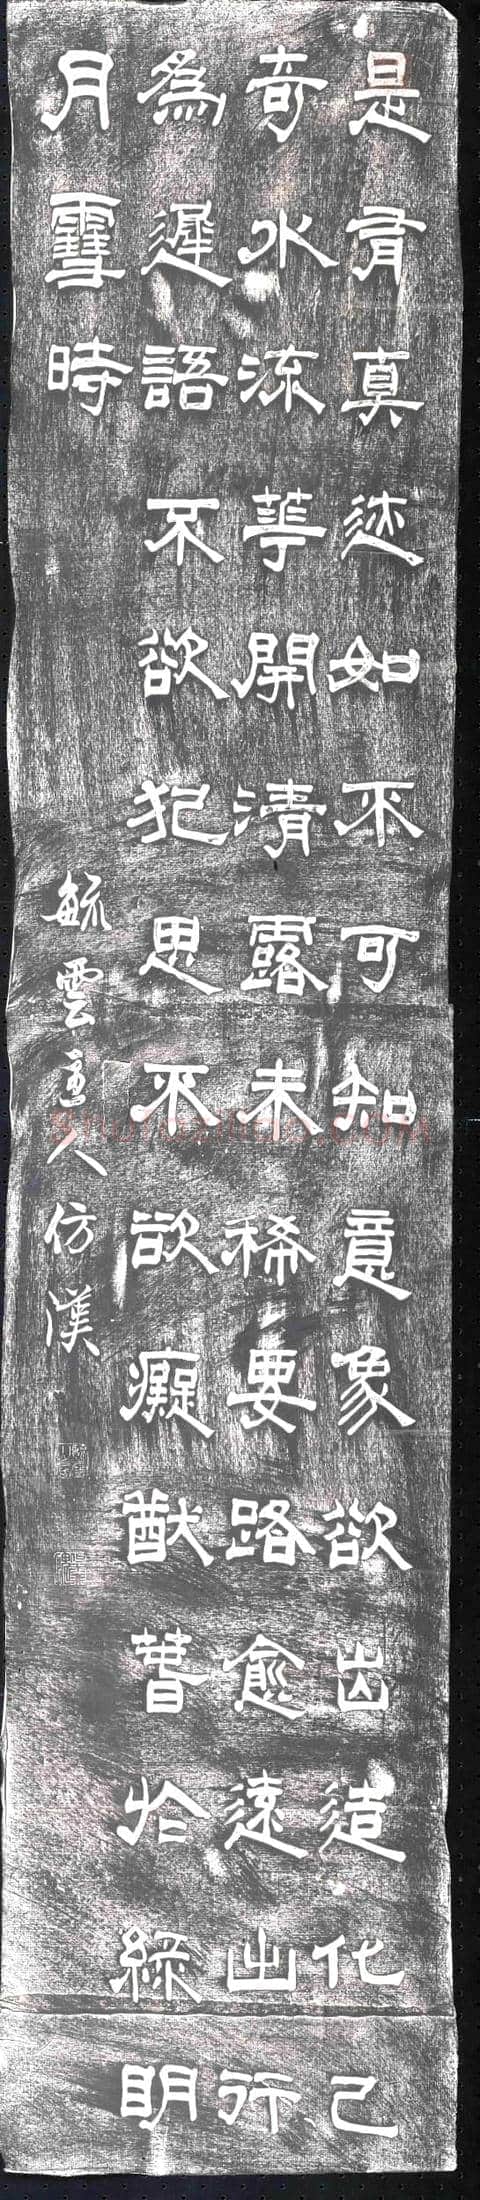 是有真迹如不可知意象欲出造化已
奇水流華開清露未稀要路愈遠幽行
為遲語不欲犯思不欲癡猷春於綠明
月雪時
毓雲主人仿漢
shufaziliao.com